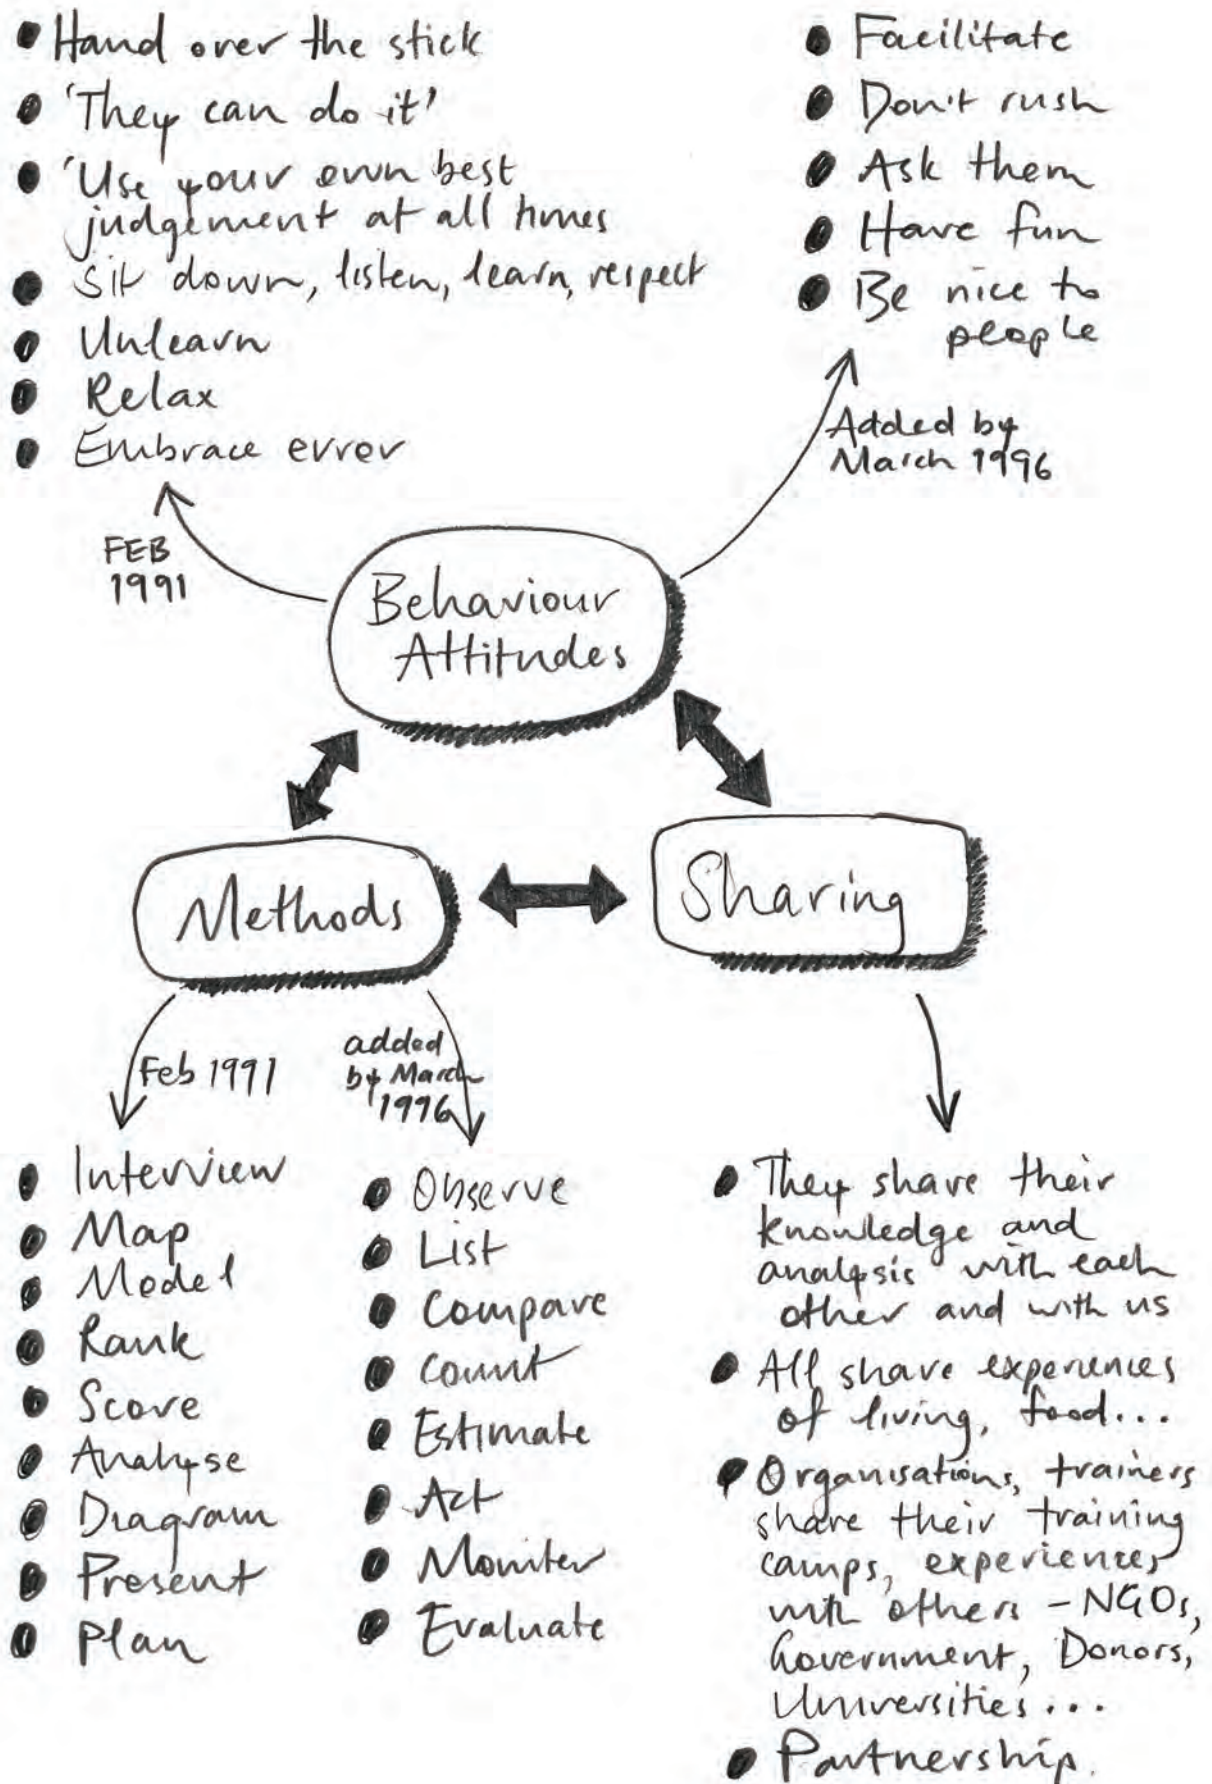 • Hand over the stick
• 'They can do it'
• 'Use your own best
judgement at all times
• Sit down, listen, learn, respect
• Unlearn
• Relax
• Embrace error
FEB
1991
• Facilitate
• Don't rush
• Ask them
• Have fun
• Be nice to
people
Added by
March 1996
Behaviour
Attitudes
Methods
Sharing
Feb 1991
• Interview
• Map
• Model
• Rank
• Score
• Analyse
• Diagram
• Present
• Plan
added
by March
1996
• Observe
• List
• Compare
• Count
• Estimate
• Act
• Moniter
• Evaluate
• They share their
knowledge and
analysis with each
other and with us
• All share experiences
of living, food...
• Organisations, trainers
share their training
camps, experiences
with others – NGOs,
Government, Donors,
Universities...
• Partnership.